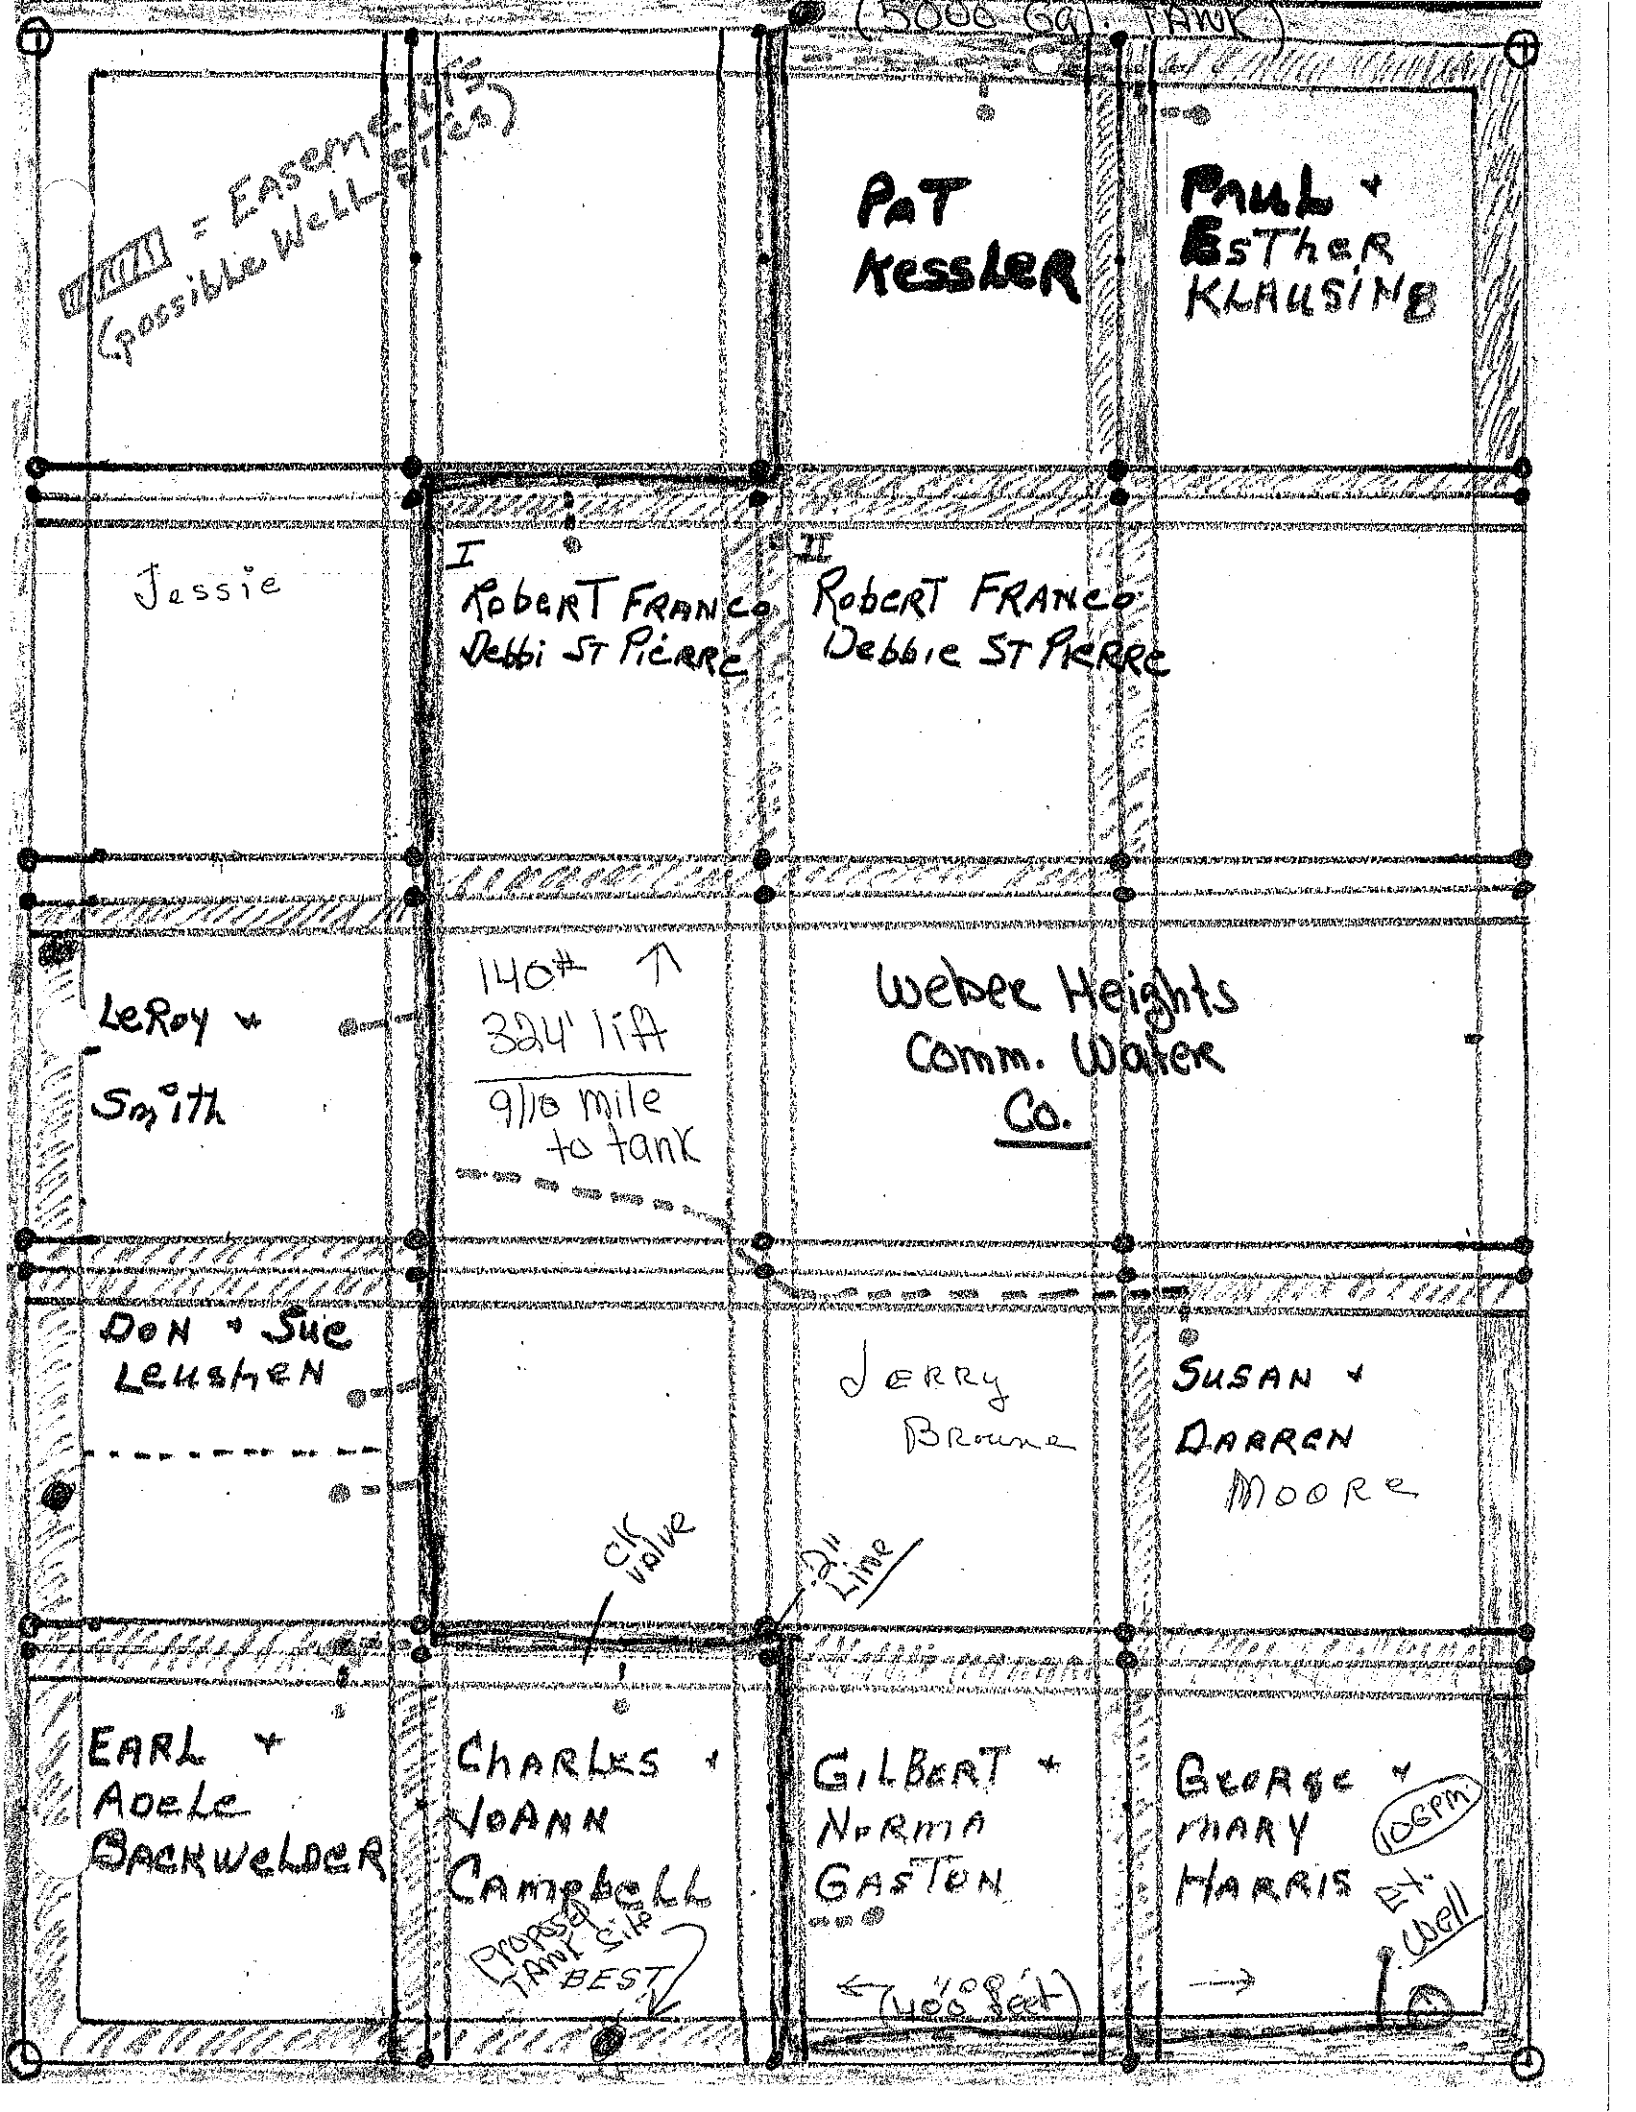 (5000 Gal. TANK)
= EASEMENTS
(possible Well Sites)
PAT
KESSLER
PAUL +
ESTHER
KLAUSING
Jessie
I
ROBERT FRANCO
Debbi ST PIERRE
II
ROBERT FRANCO
Debbie ST PIERRE
LeRoy +
Smith
140#
324' lift
9/10 mile
to tank
Weber Heights
Comm. Water
Co.
DON + SUE
LEUSHEN
JERRY
Browne
SUSAN +
DARREN
MOORE
CK
Valve
2"
Line
EARL +
ADELE
BACKWELDER
CHARLES +
JOANN
CAMPBELL
Proposed
TANK Site
BEST
GILBERT +
NORMA
GASTON
(400 feet)
GEORGE +
MARY
HARRIS
10GPM
EX.
Well